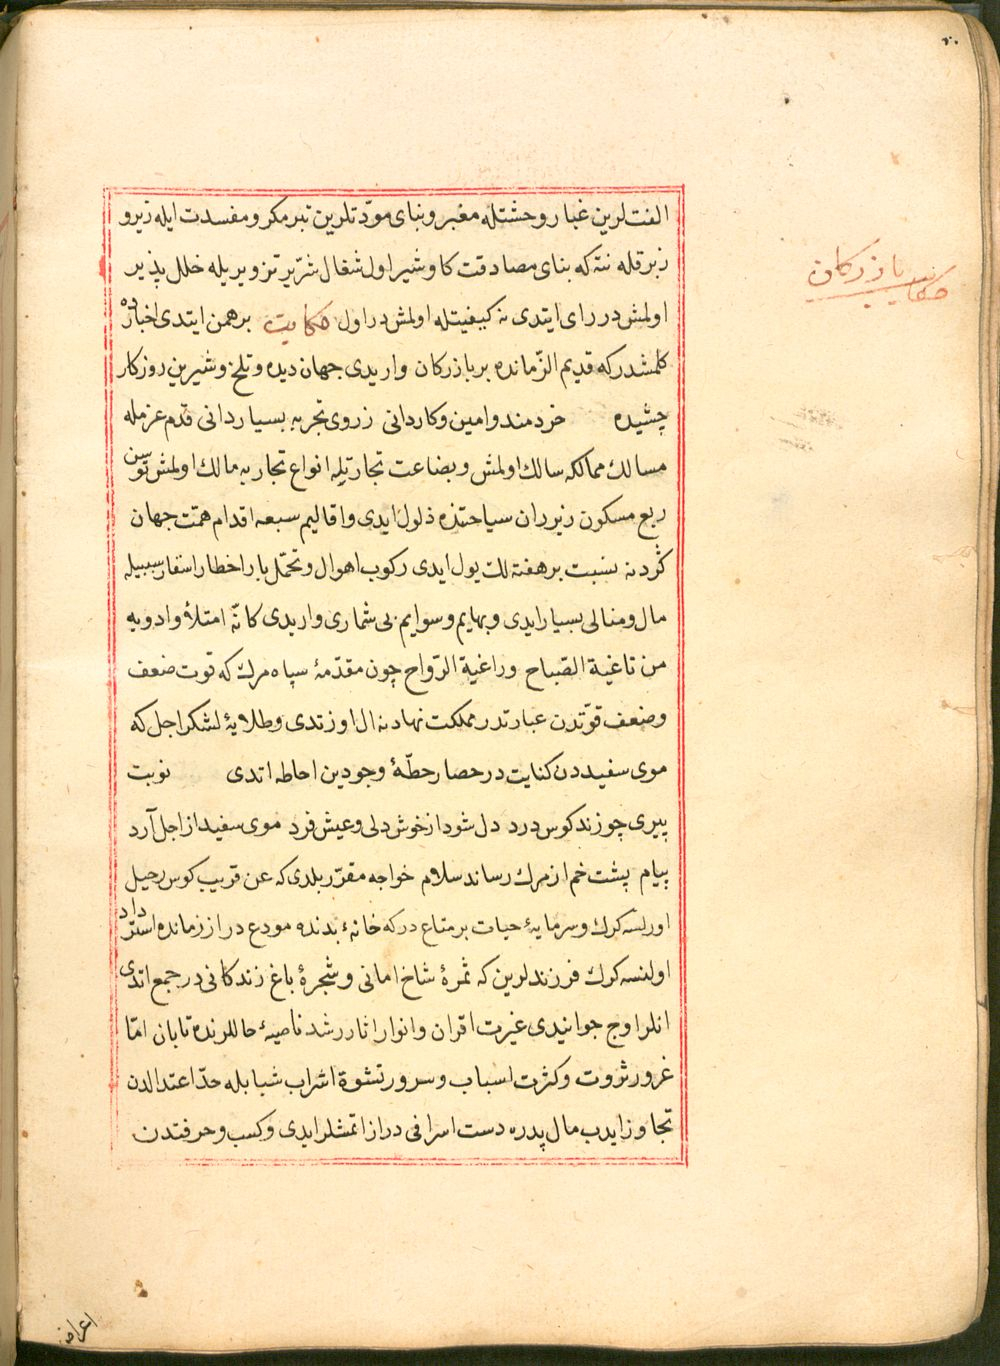 حكايت بازركان
الفتلرین غبار وحشتله مغبر و بنای مودّتلرین تبر مکر و مفسدت ایله زیر و
زبر قله نته که بنای مصادقت کاو و شیر اول شغال شرّیر تزویریله خلل پذیر
اولمشدر رای ایتدی نه کیفیتله اولمشدر اول حکایت برهمن ایتدی اخبارده
کلمشدر که قدیم الزّمانده بر بازرکان واریدی جهان دیده و تلخ و شیرین روزکار
چشیده خردمند و امین و کاردانی ز روی تجربه بسیار دانی قدم عزمله
مسالك ممالکه سالك اولمش و بضاعت تجارتیله انواع تجاربه مالك اولمش توسن
ربع مسکون زیر ران سیاحتنده ذلول ایدی و اقالیم سبعه اقدام همّت جهان
کردنه نسبت بر هفته لك یول ایدی رکوب اهوال و تحمّل بار اخطار اسفار سببیله
مال و منالی بسیار ایدی و بهایم و سوایم بی شماری واریدی کانّه امتلأ وادویه
من ثاغیة الصّباح وراغیة الرّواح چون مقدّمۀ سپاه مرك که قوت ضعف
و ضعف قوّتدن عبارتدر مملکت نهادنه ال اوزتدی و طلایۀ لشکر اجل که
موی سفیددن کنایت در حصار حطّۀ وجودین احاطه اتدی نوبت
پیری چو زند کوس درد دل شود از خوش دلی و عیش فرد موی سفید از اجل آرد
پیام پشت خم از مرك رساند سلام خواجه مقرّر بلدی که عن قریب کوس رحیل
اورلسه کرك و سرمایۀ حیات بر متاع در که خانۀ بدنده مودع در از زمانده استرداد
اولنسه کرك فرزندلرین که ثمرۀ شاخ امانی و شجرۀ باغ زندکانی در جمع اتدی
انلر اوج جوانیدی غیرت اقران و انوار اثار رشد ناصیۀ حاللرنده تابان امّا
غرور ثروت و کثرت اسباب و سرور نشوۀ اشراب شبابله حدّ اعتدالدن
تجاوز ایدب مال پدره دست اسرافی دراز اتمشلر ایدی و کسب و حرفتدن
اعراض